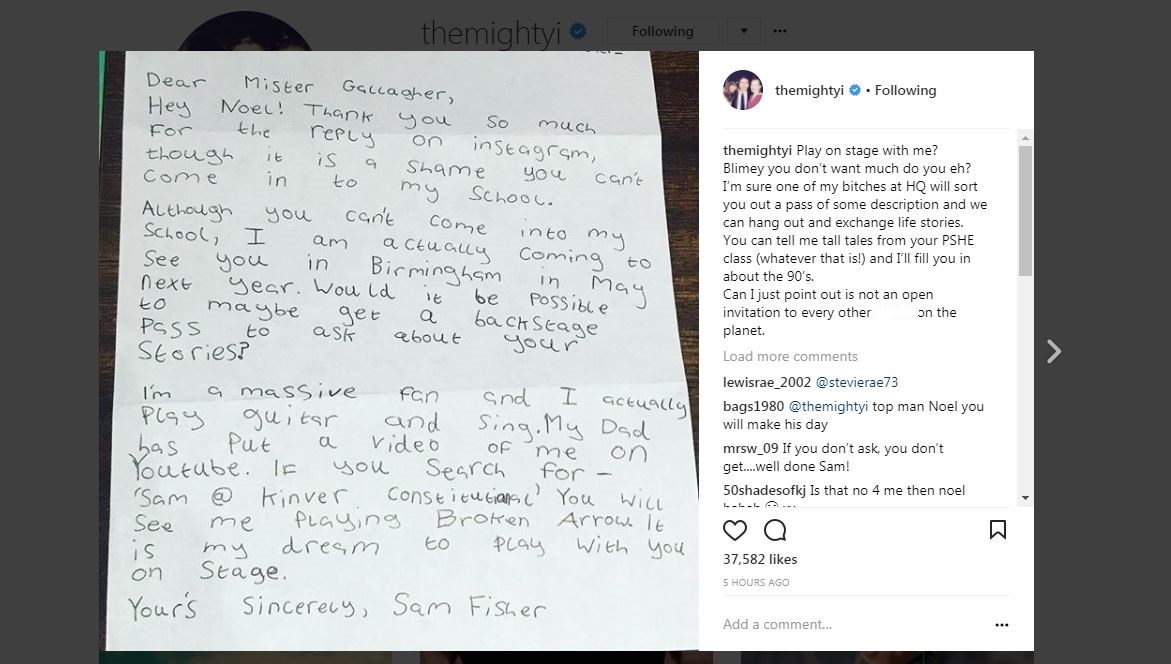 themightyi
Following
Dear Mister Gallagher,
Hey Noel! Thank you so much
For the reply on instagram,
though it is a shame you can't
come in to my School.
Although you can't come into my
School, I am actually coming to
See you in Birmingham in May
next year. Would it be possible
to maybe get a backstage
Pass to ask about your
Stories?
I'm a massive fan and I actually
Play guitar and Sing. My Dad
has Put a video of me on
Youtube. If you Search for -
'Sam @ Kinver Constitutional' You will
See me Playing Broken Arrow. It
is my dream to Play with you
on Stage.
Your's Sincerely, Sam Fisher
themightyi • Following
themightyi Play on stage with me?
Blimey you don't want much do you eh?
I'm sure one of my bitches at HQ will sort
you out a pass of some description and we
can hang out and exchange life stories.
You can tell me tall tales from your PSHE
class (whatever that is!) and I'll fill you in
about the 90's.
Can I just point out is not an open
invitation to every other on the
planet.
Load more comments
lewisrae_2002 @stevierae73
bags1980 @themightyi top man Noel you
will make his day
mrsw_09 If you don't ask, you don't
get....well done Sam!
50shadesofkj Is that no 4 me then noel
37,582 likes
5 HOURS AGO
Add a comment...